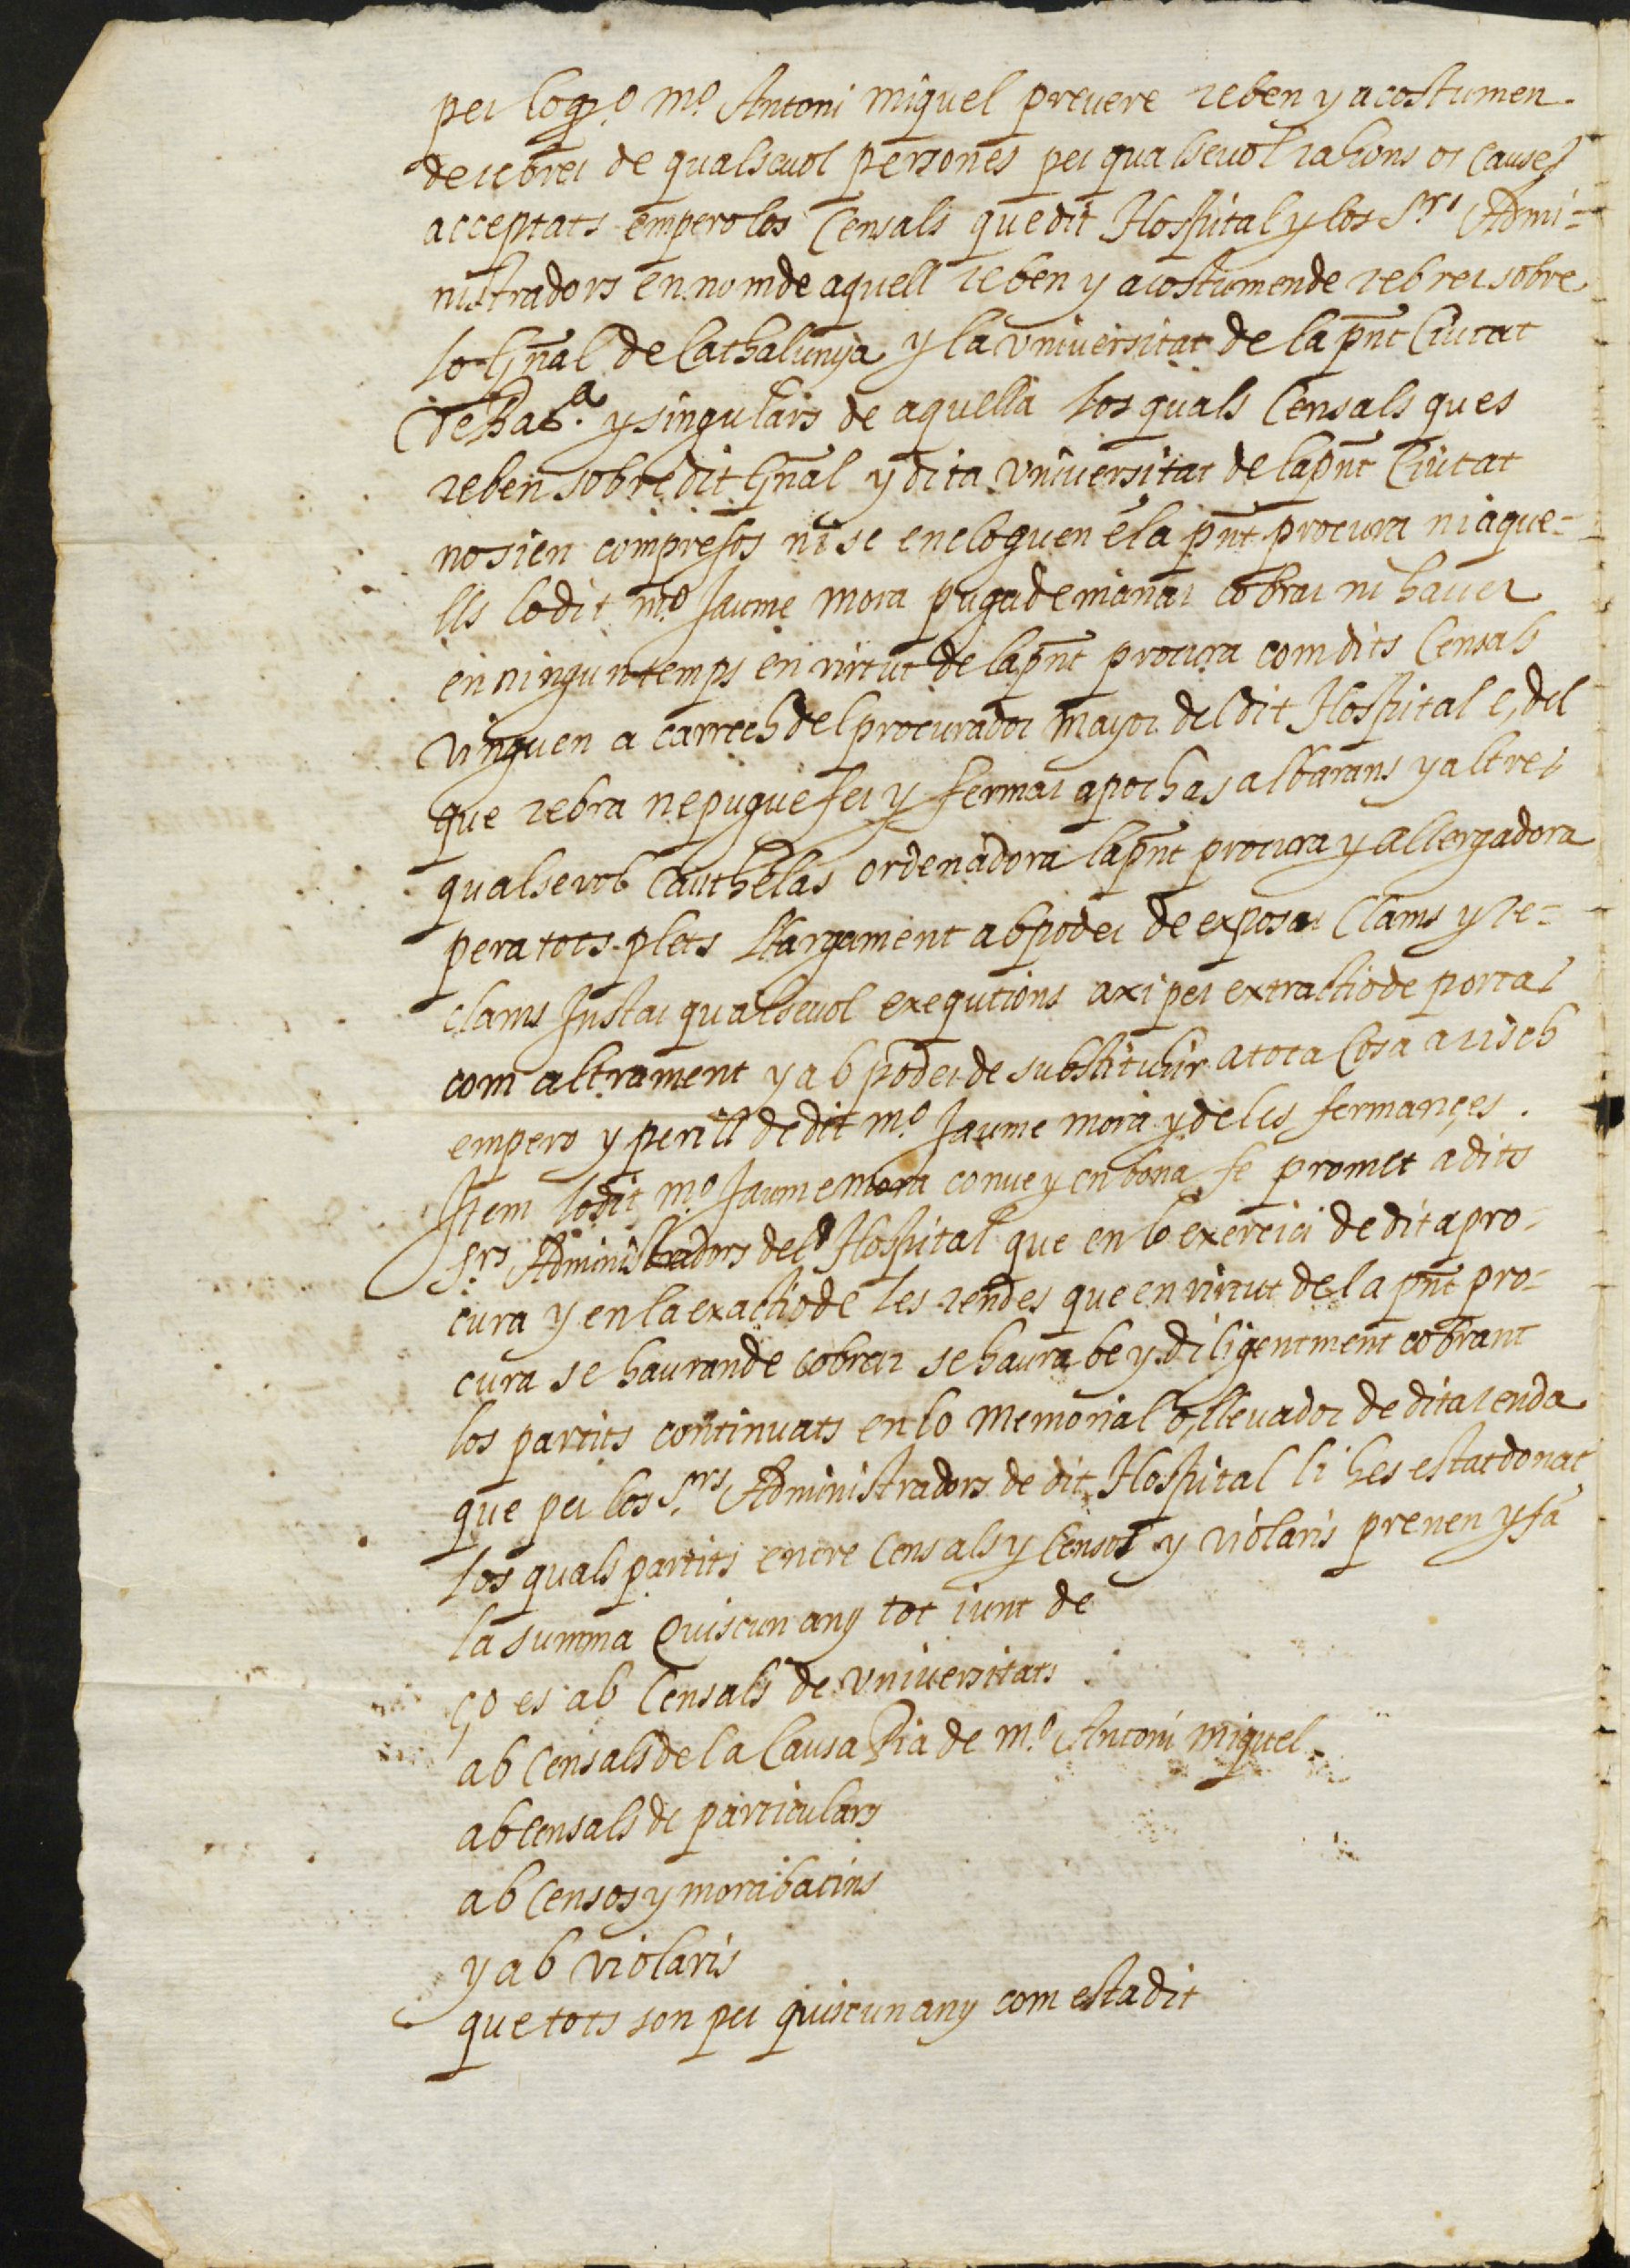 per lo q.º m.º Antoni miquel preuere reben y acostumen
de rebrer de qualseuol persones per qualseuol rahons or causes
acceptats empero los Censals que dit Hospital y los S.rs Admi-
nistradors en nom de aquell reben y acostumen de rebrer sobre
lo Gñal de Cathalunya y la vniuersitat de la pñt Ciutat
de Bar.ª y singulars de aquella los quals Censals ques
reben sobre dit Gñal y dita vniuersitat de la pñt Ciutat
no sien compresos ni se encloguen ē la pñt procura ni aque-
lls lo dit m.º Jaume mora puga demanar cobrar ni hauer
en ningun temps en virtut de la pñt procura com dits Censals
vinguen a carrech del procurador mayor del dit Hospital e, del
que rebra ne pugue fer y fermar apochas albarans y altres
qualsevol Cauthelas ordenadora la pñt procura y allergadora
pera tots plets llargament ab poder de exposar Clams y re-
clams Instar qualseuol exequtions axi per extractio de portas
com altrament y ab poder de substituhir a tota Cosa a risch
empero y perill de dit m.º Jaume mora y de les fermançes.
Item lo dit m.º Jaume mora conue y en bona fe promet a dits
S.rs Administradors del d Hospital que en lo exercici de dita pro-
cura y en la exactio de les rendes que en virtut de la pñt pro-
cura se hauran de cobrar se haura be y diligentment cobrant
los partits continuats en lo memorial o, lleuador de dita renda
que per los S.rs Administradors de dit Hospital li hes estat donat
los quals partits entre Censals y Censos y violaris prenen y fā
la summa Quiscun any tot iunt de
ço es ab Censals de vniuersitats
ab Censals de la Causa Pia de m.º Antoni miquel
ab censals de particulars
ab Censos y morabatins
y ab violaris
que tots son per quiscun any com esta dit